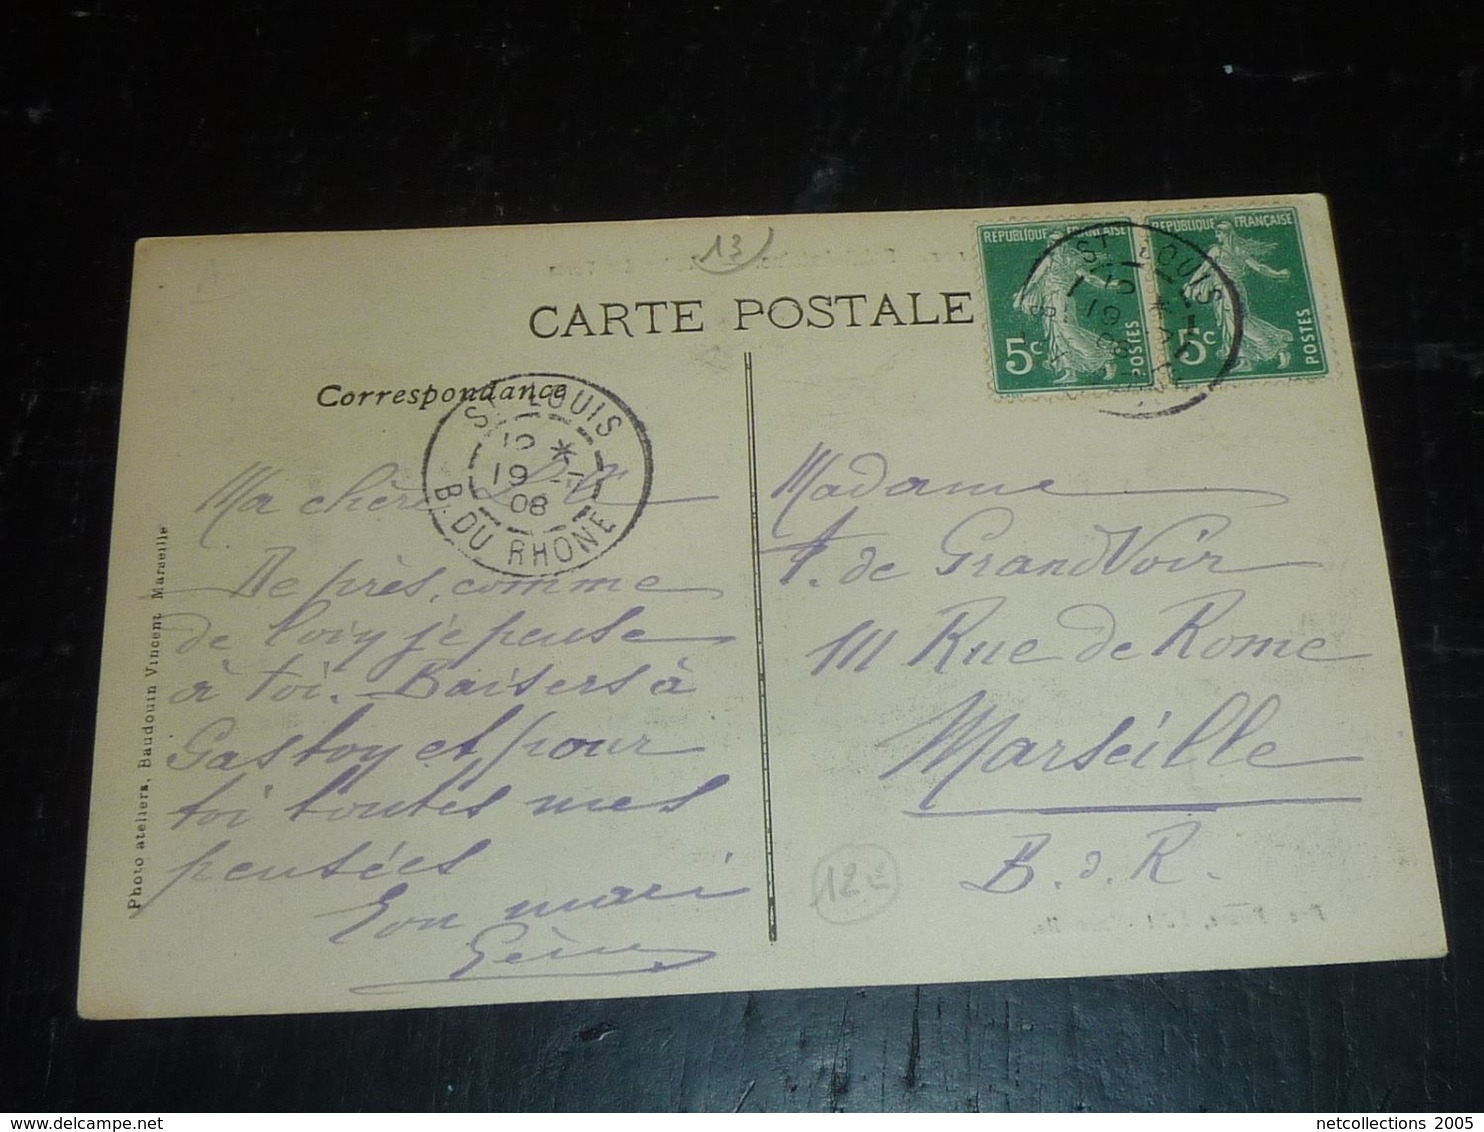 13
CARTE POSTALE
REPUBLIQUE FRANÇAISE
5c
POSTES
REPUBLIQUE FRANÇAISE
5c
POSTES
ST LOUIS
Correspondance
ST LOUIS
19
08
B. DU RHONE
Ma chère
De près, comme
de loin je pense
à toi. Baisers à
Gastoy et pour
toi toutes mes
pensées
Ton mari
Madame
A. de GrandVoir
111 Rue de Rome
Marseille
B. d. R.
12€
Photo ateliers, Baudouin Vincent Marseille
netcollections 2005